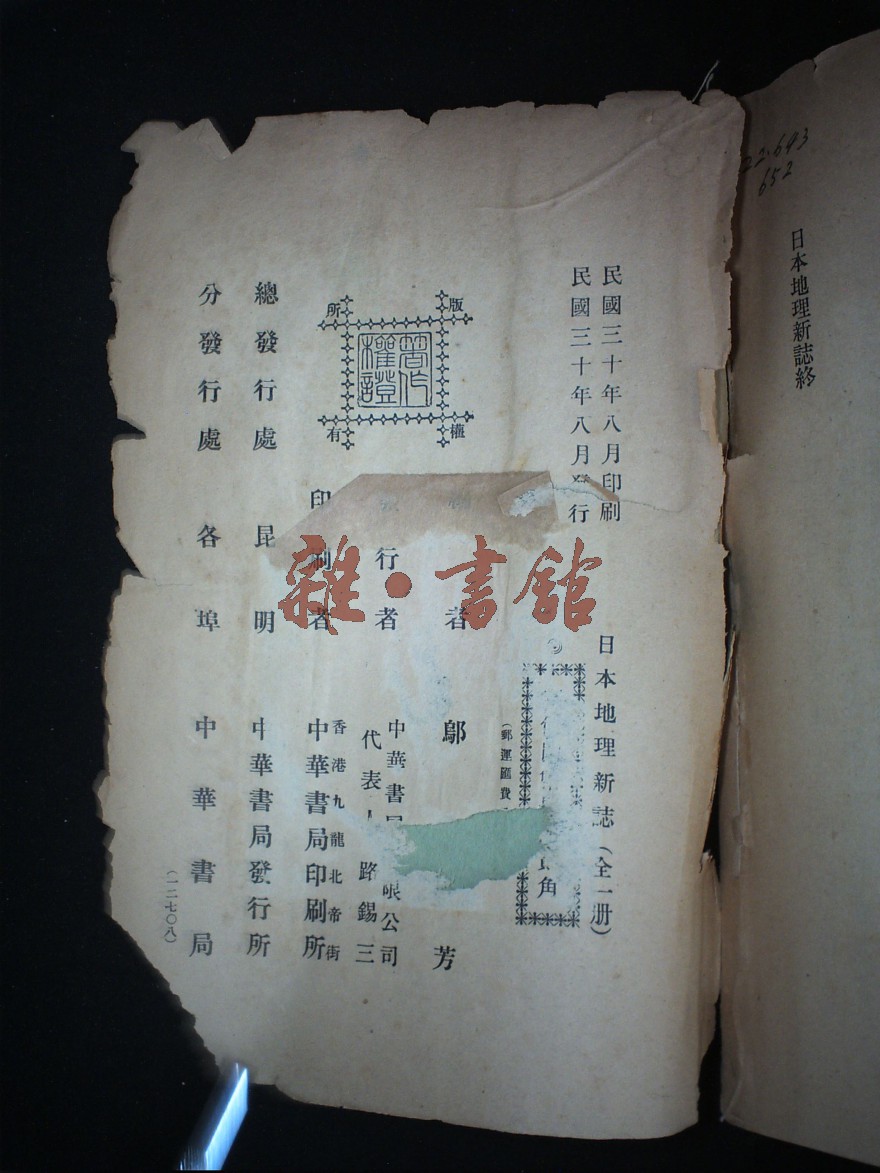 22.693
652
日本地理新誌終
民國三十年八月印刷
民國三十年八月發行
日本地理新誌（全一册）
角
（郵運匯費
者 鄔 芳
行者 中華書局 限公司
代表人 路錫三
印刷者 香港九龍北帝街
中華書局印刷所
總發行處 昆明 中華書局發行所
分發行處 各埠 中華書局
（一二七〇八）
版權所有
著作權證
雜·書館